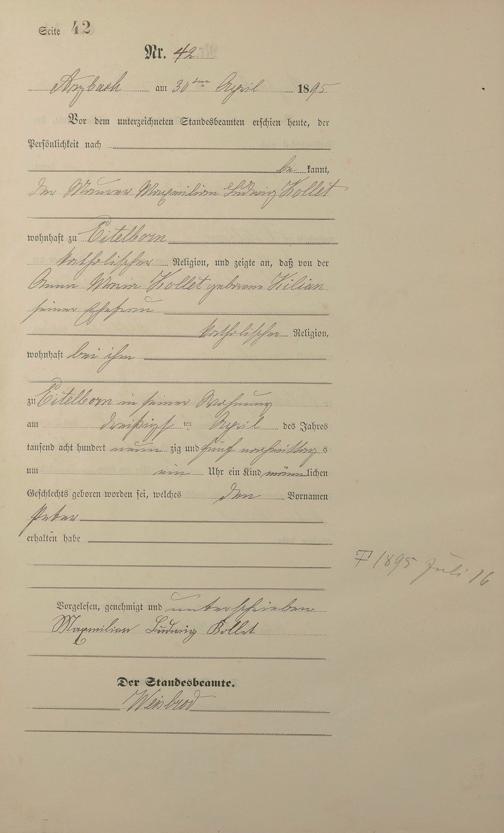 Seite 42
Nr. 42
Arzbach am 30ten April 1895
Vor dem unterzeichneten Standesbeamten erschien heute, der
Persönlichkeit nach
be kannt,
der Maurer Maxmilian Ludwig Kollet
wohnhaft zu Eitelborn
katholischer Religion, und zeigte an, daß von der
Anna Maria Kollet geborene Kilian
seiner Ehefrau
katholischer Religion,
wohnhaft bei ihm
zu Eitelborn in seiner Wohnung
am dreißigsten April des Jahres
tausend acht hundert neun zig und fünf nachmittag s
um ein Uhr ein Kind männlichen
Geschlechts geboren worden sei, welches den Vornamen
Peter
erhalten habe
† 1895 Juli 16
Vorgelesen, genehmigt und unterschrieben
Maxmilian Ludwig Kollet
Der Standesbeamte.
Weisbrod